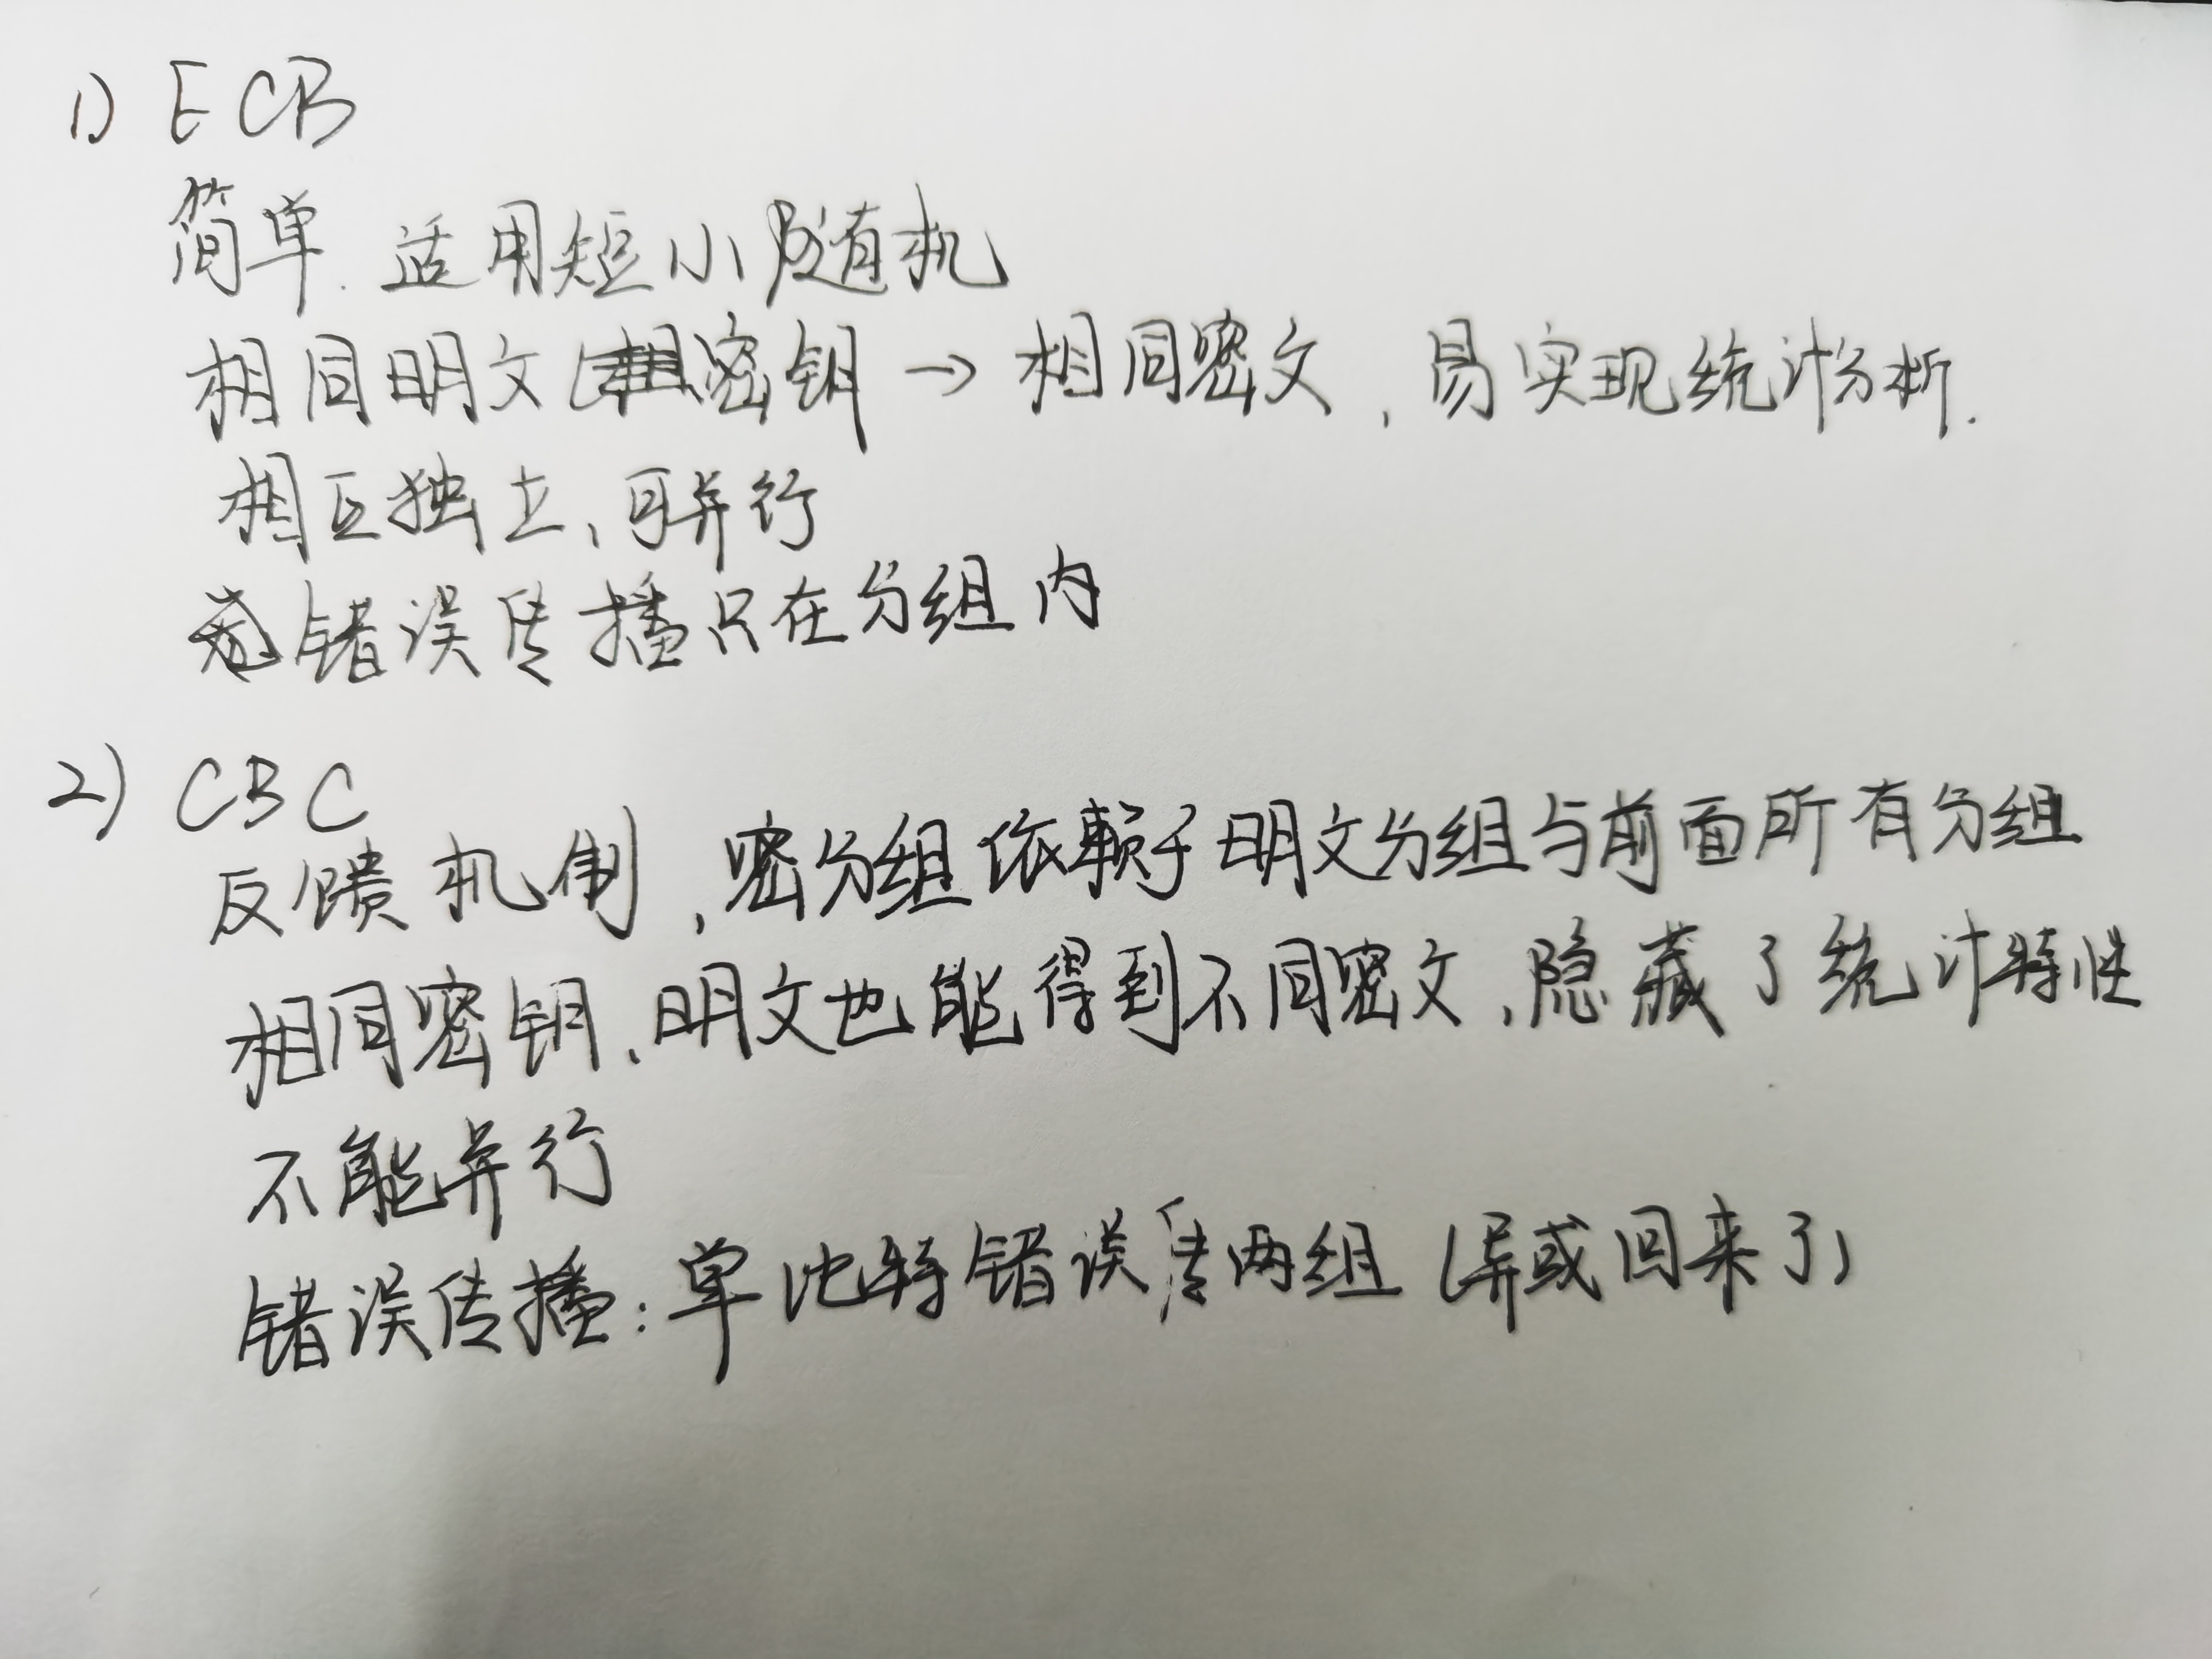 1) ECB
简单. 适用短小随机
相同明文密钥 → 相同密文, 易实现统计分析.
相互独立, 可并行
错误传播只在分组内
2) CBC
反馈机制, 密分组依赖于明文分组与前面所有分组
相同密钥、明文也能得到不同密文, 隐藏了统计特性
不能并行
错误传播: 单比特错误传两组 (异或回来了)